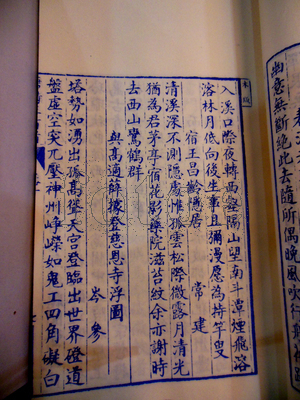 幽意無斷絕此去隨所偶晚風
入溪口際夜轉西壑隔山望南斗潭煙飛溶
溶林月低向後生事且彌漫願為持竿叟
宿王昌齡隱居
常建
清溪深不測隱處惟孤雲松際微露月清光
猶為君茅亭宿花影藥院滋苔紋余亦謝時
去西山鸞鶴群
與高適薛據登慈恩寺浮圖
岑參
塔勢如湧出孤高聳天宮登臨出世界磴道
盤虛空突兀壓神州崢嶸如鬼工四角礙白